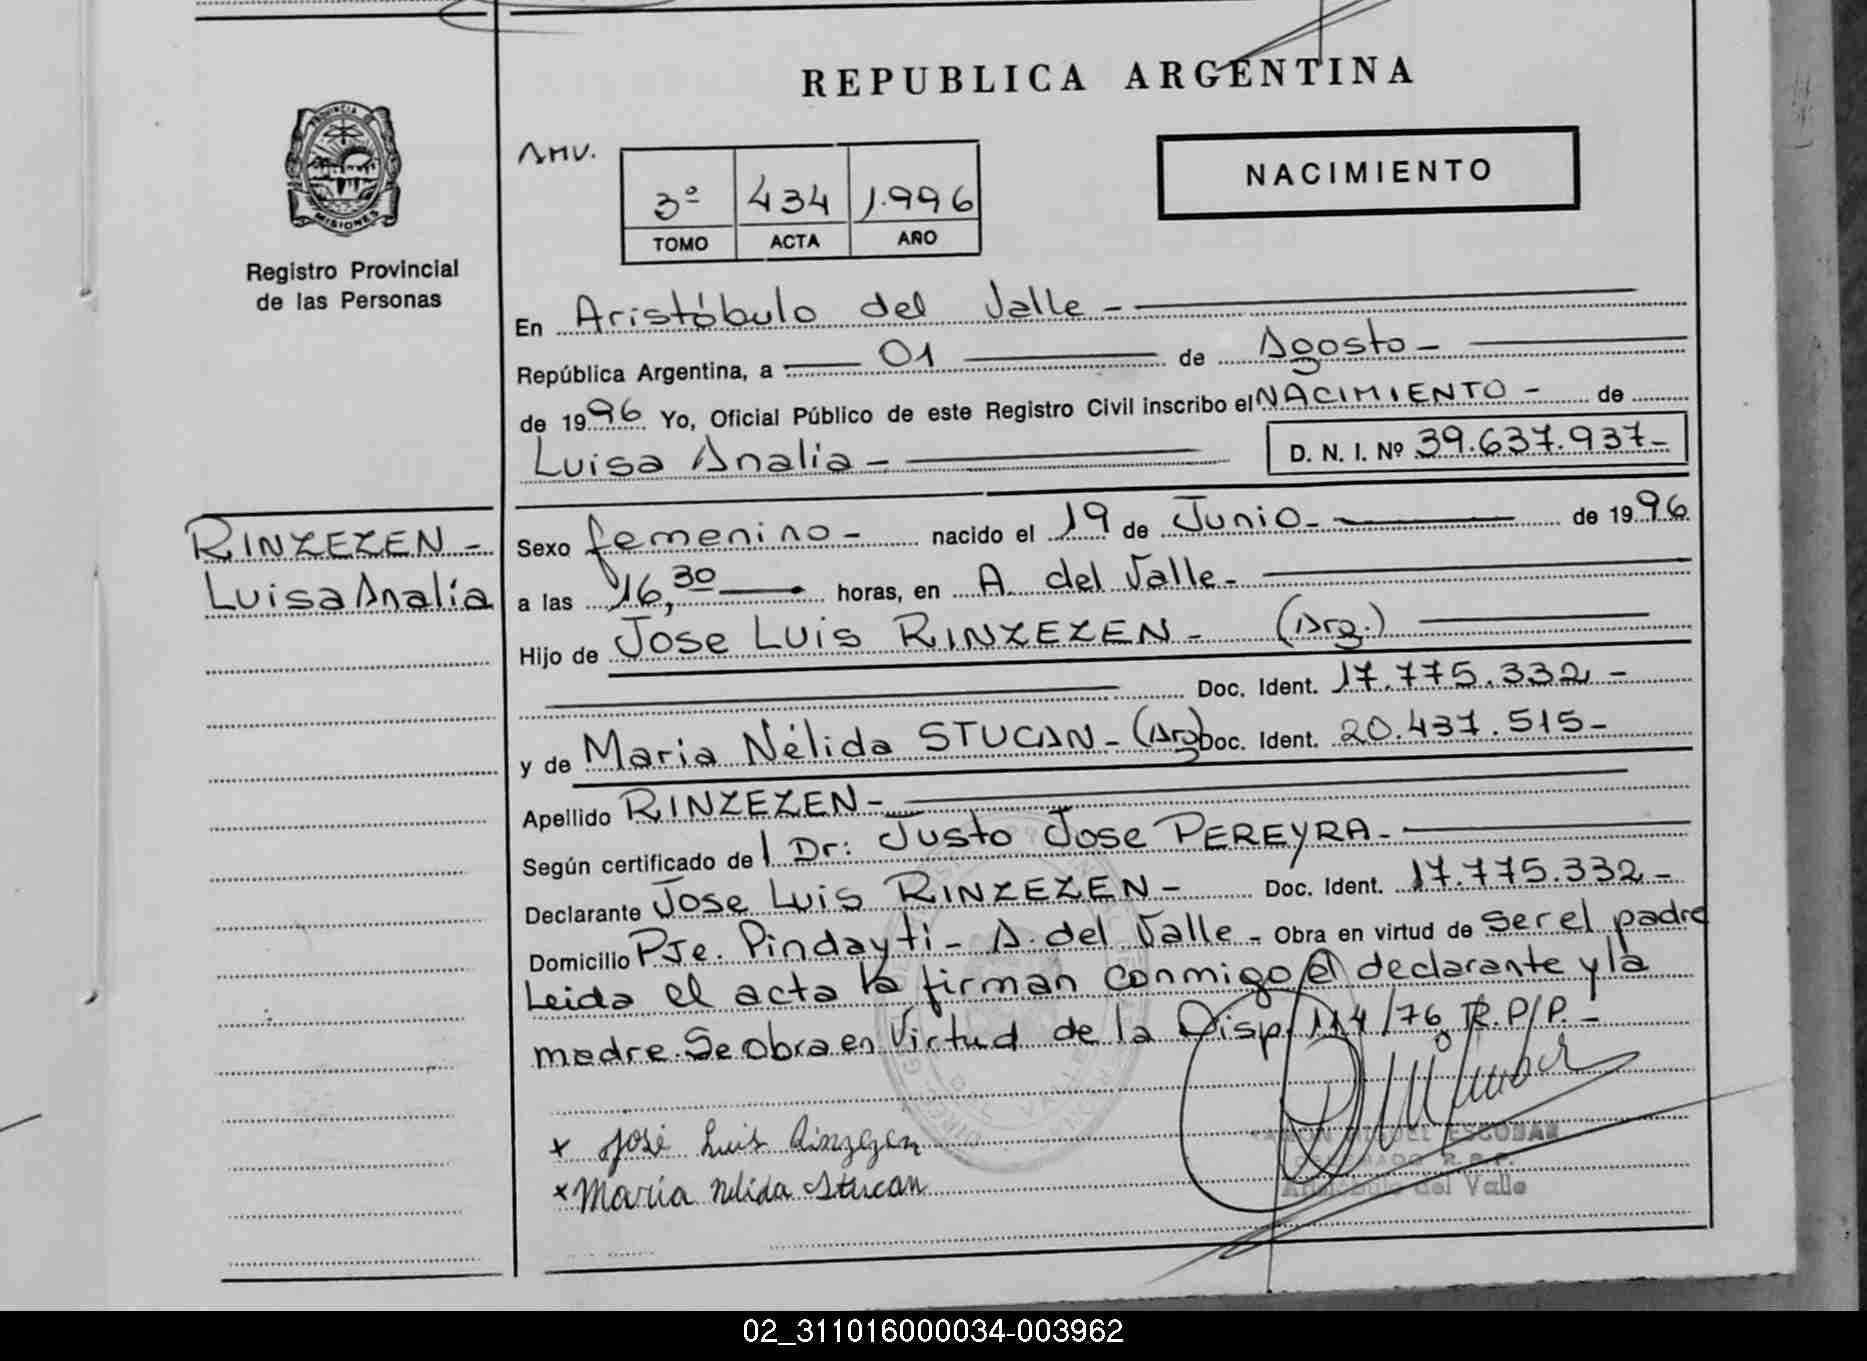 REPUBLICA ARGENTINA
AMV.
3º 434 1.996
TOMO ACTA AÑO
NACIMIENTO
PROVINCIA DE
MISIONES
Registro Provincial
de las Personas
En Aristóbulo del Valle -
República Argentina, a 01 de Agosto -
de 1996 Yo, Oficial Público de este Registro Civil inscribo el NACIMIENTO - de
Luisa Analia - D. N. I. Nº 39.637.937-
RINZEZEN -
Luisa Analía
Sexo femenino - nacido el 19 de Junio - de 1996
a las 16,30 horas, en A. del Valle -
Hijo de Jose Luis RINZEZEN - (Arg.)
Doc. Ident. 17.775.332 -
y de Maria Nélida STUCAN - (Arg) Doc. Ident. 20.437.515 -
Apellido RINZEZEN -
Según certificado de l Dr: Justo Jose PEREYRA -
Declarante Jose Luis RINZEZEN - Doc. Ident. 17.775.332 -
Domicilio PJe. Pindayti - A. del Valle - Obra en virtud de ser el padre
Leida el acta la firman conmigo el declarante y la
madre. Se obra en Virtud de la Disp. 114/76 R.P/P. -
x José Luis Rinzezen
x Maria Nelida Stucan
RAMON MIGUEL ESCOBAR
R.P.P.
Aristóbulo del Valle
02_311016000034-003962